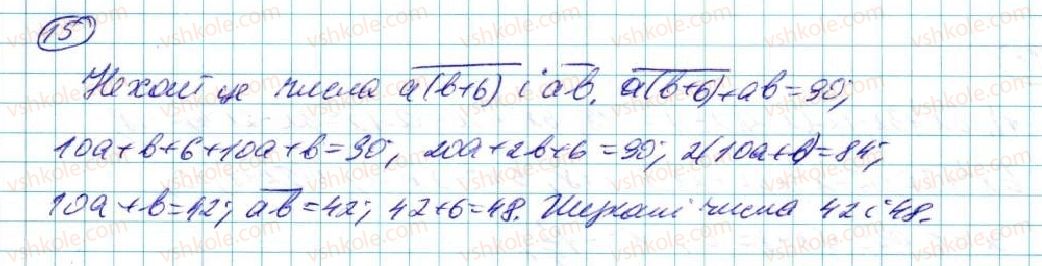 15
Нехай це числа a(b+6) і ab. a(b+6)+ab=90;
10a+b+6+10a+b=90; 20a+2b+6=90; 2(10a+b)=84;
10a+b=42; ab=42; 42+6=48. Шукані числа 42 і 48.